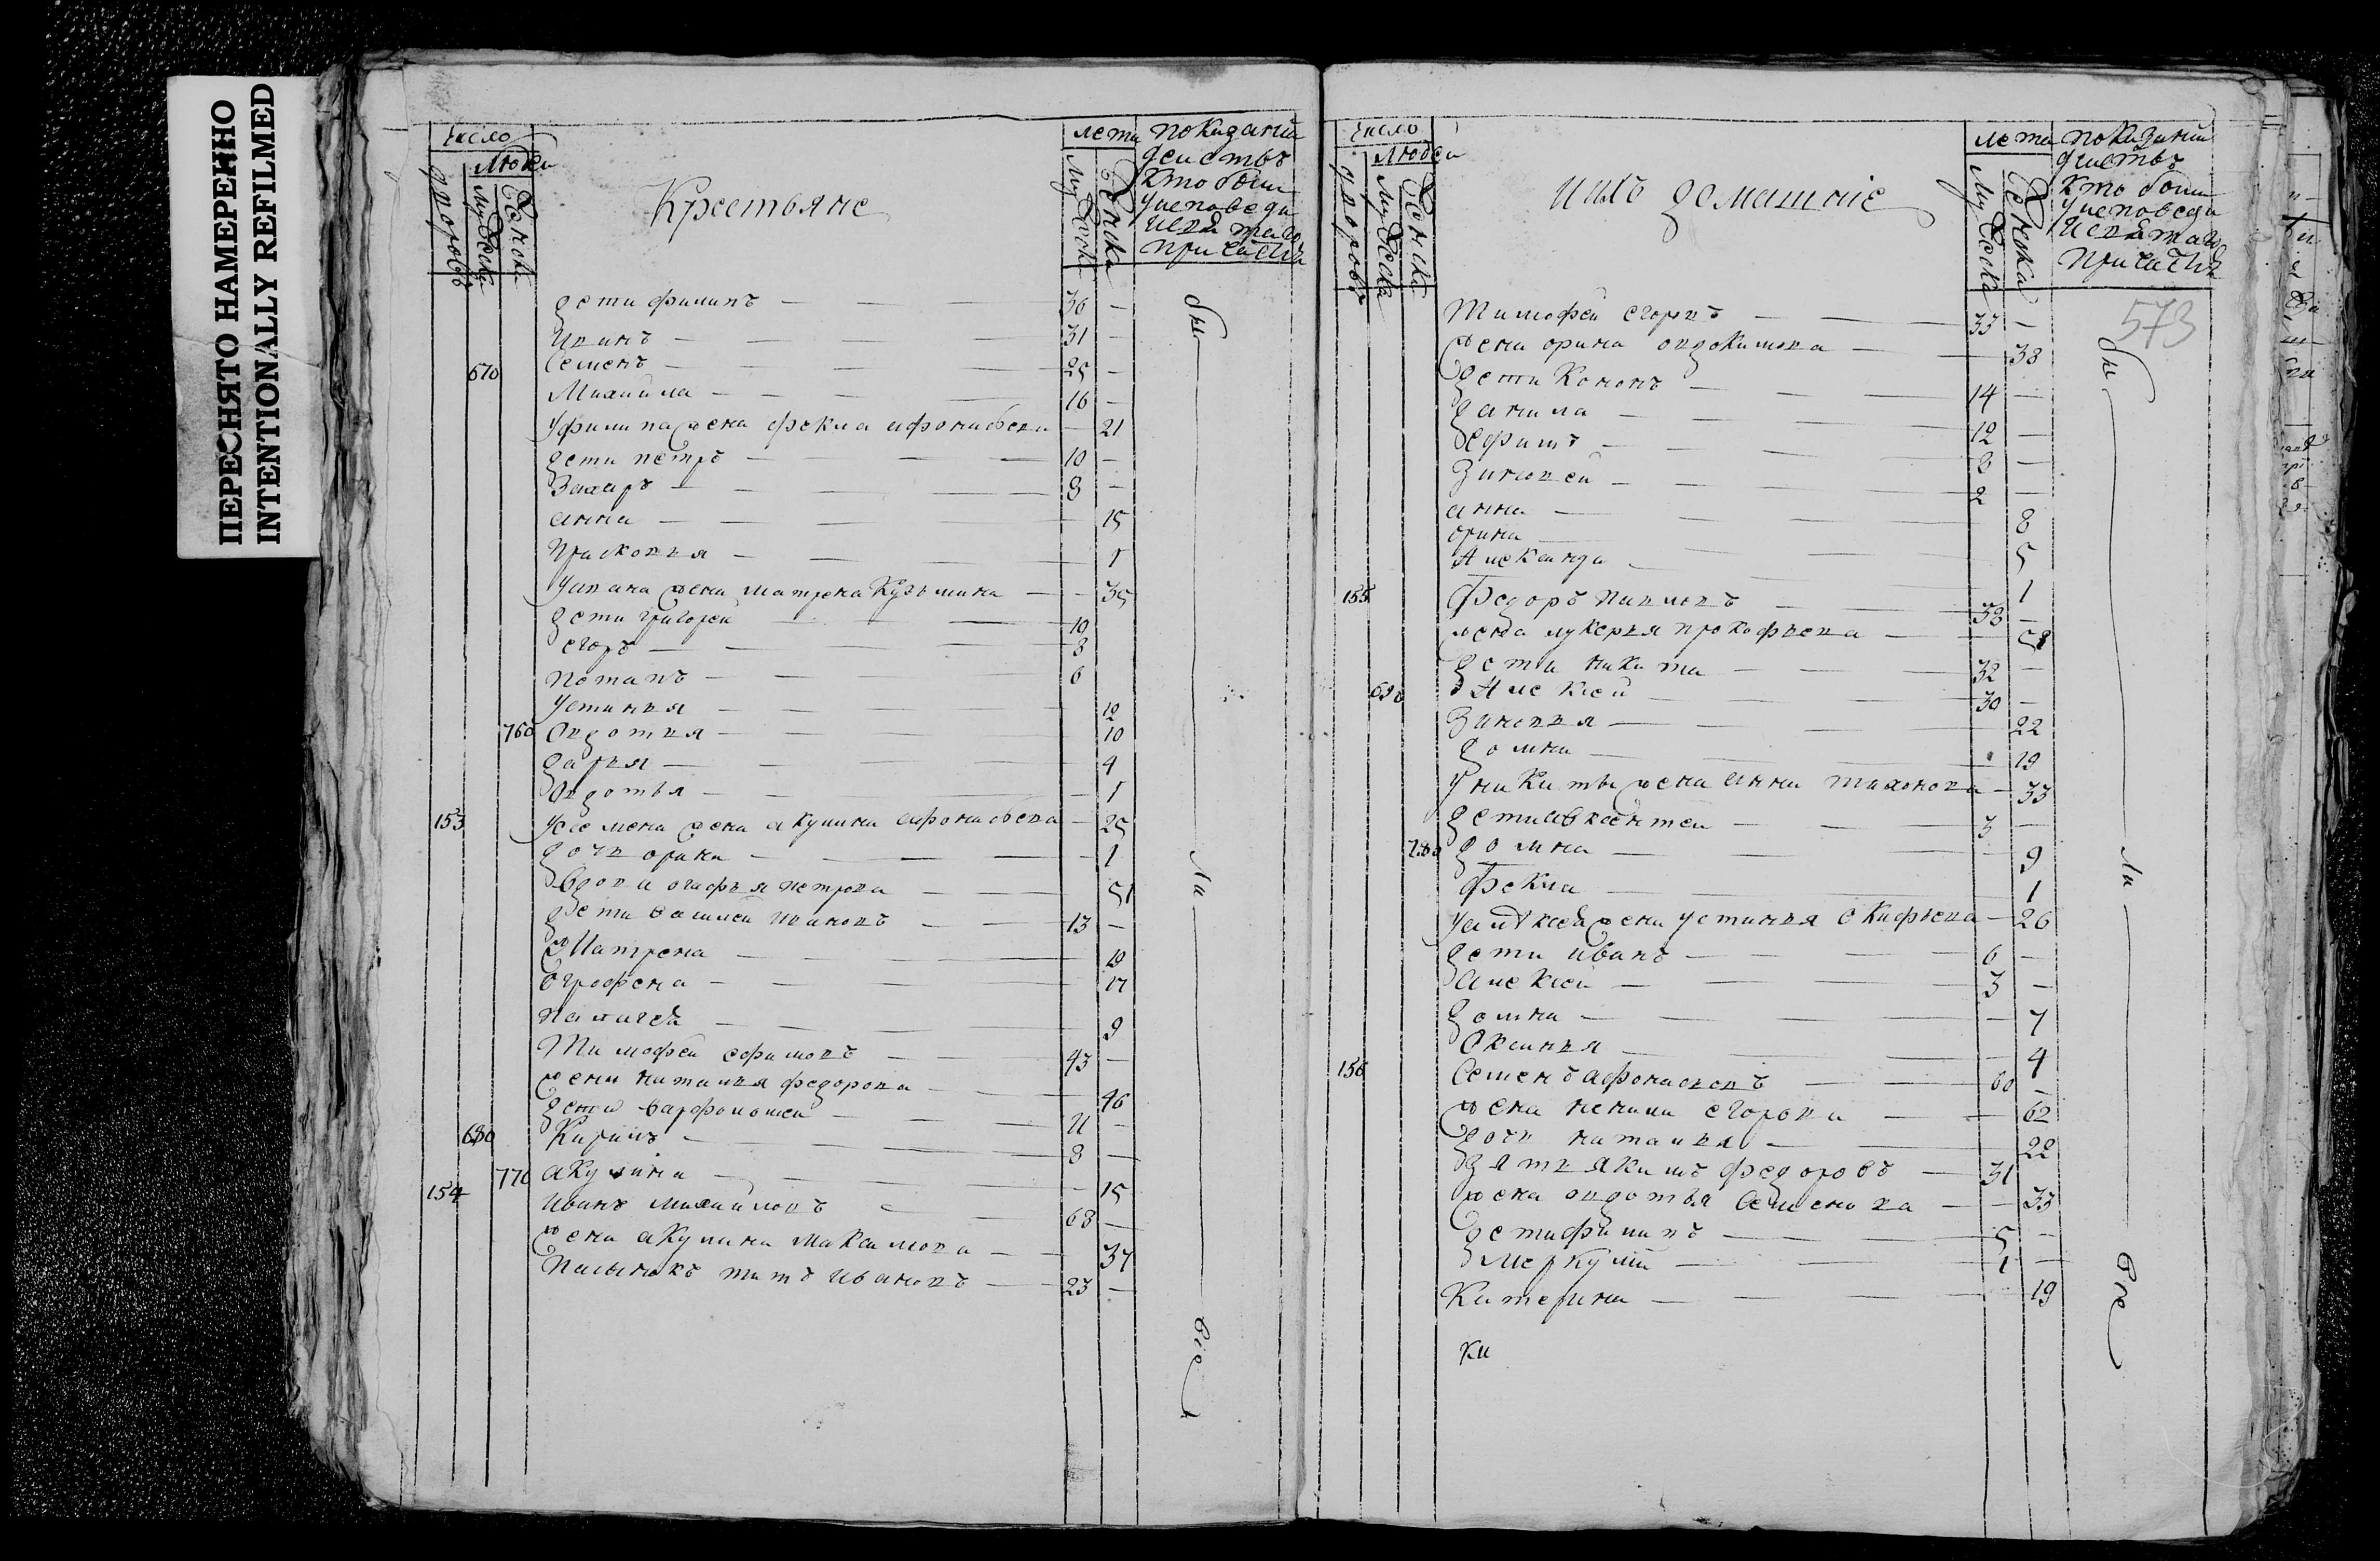 ПЕРЕСНЯТО НАМЕРЕННО
INTENTIONALLY REFILMED
число
людей
дворовъ
мужеска
женска
Крестьяне
лета
мужеска
женска
показании
действъ
кто были
у исповеди
и святаго
причастия
дети филипъ — 36 —
Иванъ — 31 —
670 Семенъ — 25 —
Михаила — 16 —
У филипа жена фекла афонасьева — 21
дети петръ — 10 —
Захаръ — 8 —
анна — 15
Прасковья — 1
У ивана жена матрена Кузьмина — 35
дети григорей — 10
егоръ — 8
потапъ — 6
Устинья — 12
760 Овдотья — 10
дарья — 4
Овдотья — 1
153 У семена жена акулина афонасьева — 25
дочь орина — 1
вдова огафья петрова — 51
дети василей ивановъ — 13 —
Матрена — 19
Огрофена — 17
палагея — 9
Тимофей ефимовъ — 43 —
жена наталья федорова — 46
дети варфоломей — 11 —
680 Кирилъ — 8 —
770 акулина — 15
154 Иванъ михаиловъ — 68 —
жена акулина максимова — 37
Пасынокъ титъ ивановъ — 23 —
бы
ли
все
число
людей
дворовъ
мужеска
женска
ихъ домашние
лета
мужеска
женска
показании
действъ
кто были
у исповеди
и святаго
причастия
573
Тимофей егоровъ — 33 —
жена орина овдокимова — 38
дети Кононъ — 14 —
данила — 12 —
ефимъ — 8 —
Зиновей — 2 —
анна — 8
орина — 5
Александра — 1
155 Федоръ павловъ — 58 —
жена лукерья прокофьева — 58
дети никита — 32 —
690 Алексей — 30 —
Зиновья — 22
домна — 19
У никиты жена анна тихонова — 33
дети авксентей — 3 —
780 домна — 9
фекла — 1
У алексея жена устинья окифьева — 26
дети иванъ — 6 —
алексей — 3 —
домна — 7
Оксинья — 4
156 Семенъ афонасьевъ — 60 —
жена ненила егорова — 62
дочь наталья — 22
зять якимъ федоровъ — 31
жена овдотья Семенова — 33
дети филипъ — 5 —
меркулий — 1 —
Катерина — 19
ки
бы
ли
все